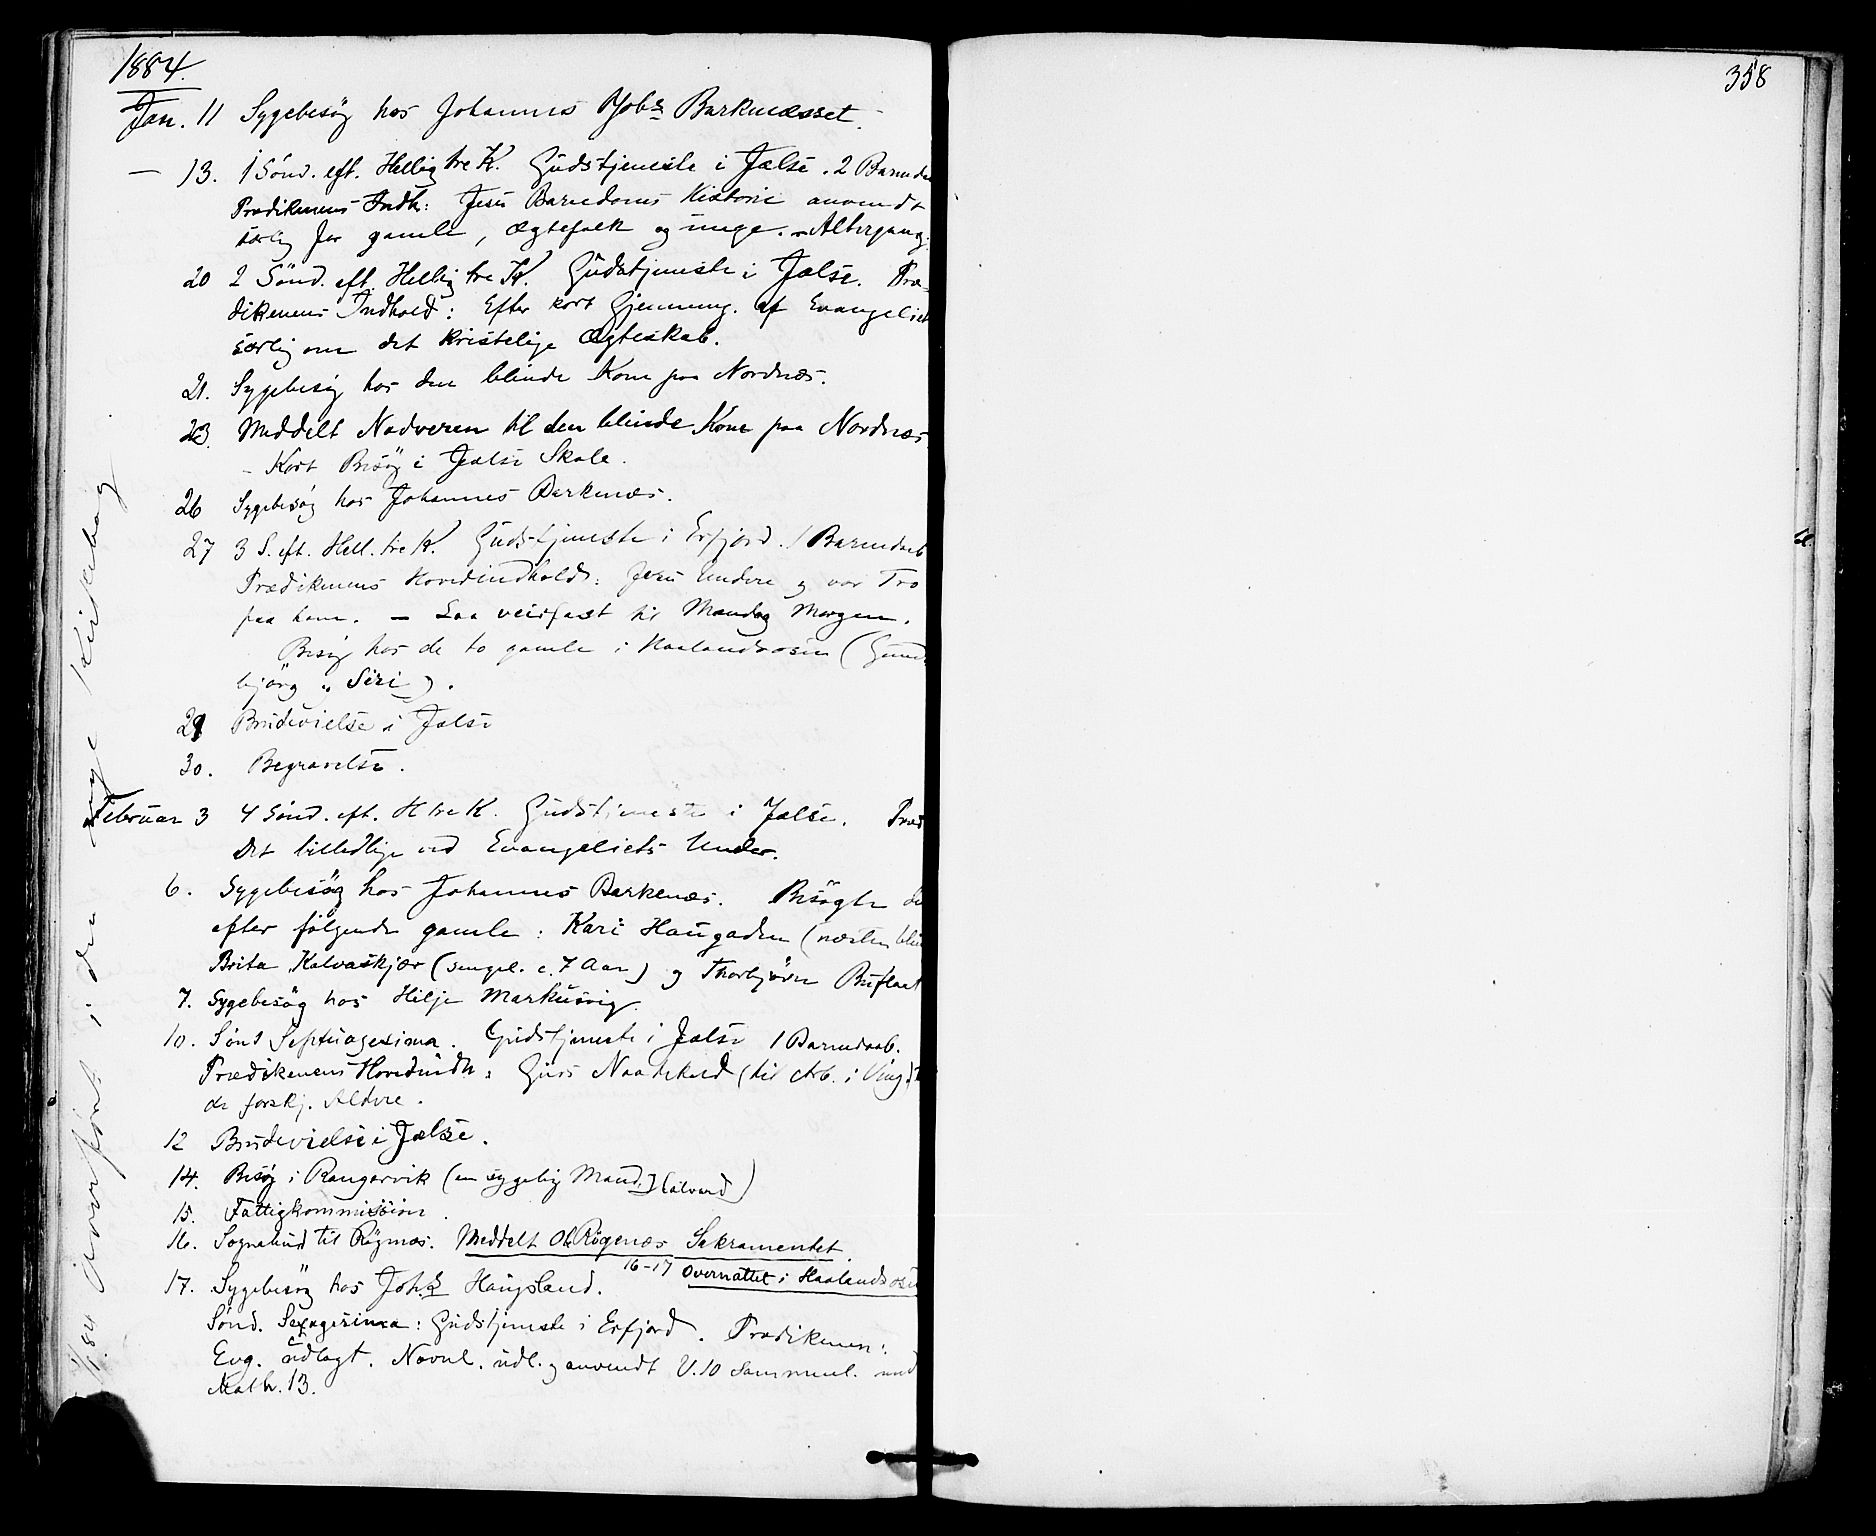 1884.
Jan. 11 Sygebesøg hos Johannes Barkenæsset.
— 13. 1 Sønd. eft. Hellig tre K. Gudstjeneste i Jælse. 2 Barnedaab
Prædikenens Indh: Jesu Barndoms Historie anvendt
særlig for gamle, Ægtefolk og unge. – Altergang.
20 2 Sønd. eft. Hellig tre K. Gudstjeneste i Jelse. Præ-
dikenens Indhold: Efter kort Gjennemg. af Evangeliet
særlig om det kristelige Ægteskab.
21. Sygebesøg hos den blinde Kone paa Nordnæs.
23. Meddelt Nadveren til den blinde Kone paa Nordnæs
– Kort Besøg i Jelse Skole.
26 Sygebesøg hos Johannes Barkenæs.
27 3 S. eft. Hell. tre K. Gudstjeneste i Erfjord. 1 Barnedaab
Prædikenens Hovedindhold: Jesu Undere og vor Tro
paa ham. – Laa veirfast til Mandag Morgen.
Besøg hos de to gamle i Haalandsosen (Gund-
bjørg " Siri).
29 Brudevielse i Jelse
30. Begravelse.
Februar 3 4 Sønd. eft. H tre K. Gudstjeneste i Jælse. Præd
Det billedlige ved Evangeliets Under.
6. Sygebesøg hos Johannes Barkenæs. Besøgte de
efter følgende gamle: Kari Haugaden (næsten blin
Brita Kalvaskjær (sengel. c. 7 Aar) og Thorbjørn
7. Sygebesøg hos Hilje Markusvig.
10. Sønd Septuagesima. Gudstjeneste i Jælse 1 Barnedaab.
Prædikenens Hovedindh: Guds Naadekald (til Arb. i Ving.)
de forskj. Aldere.
12 Brudevielse i Jælse.
14. Besøg i Rangarvik (en sygelig Mand)
15. Fattigkommission.
16. Sognebud til Røgnæs. Meddelt Ole Røgenæs Sakramentet.
16–17 Overnattet i Haalandsosen
17. Sygebesøg hos Joh.s Haugsland.
Sønd. Sexagesima: Gudstjeneste i Erfjord. Prædikenen:
Evg. udlagt. Navnl. udl. og anvendt V. 10 sammenl. med
Math. 13.
1/1 84 Anført i den nye Kirkebog
358